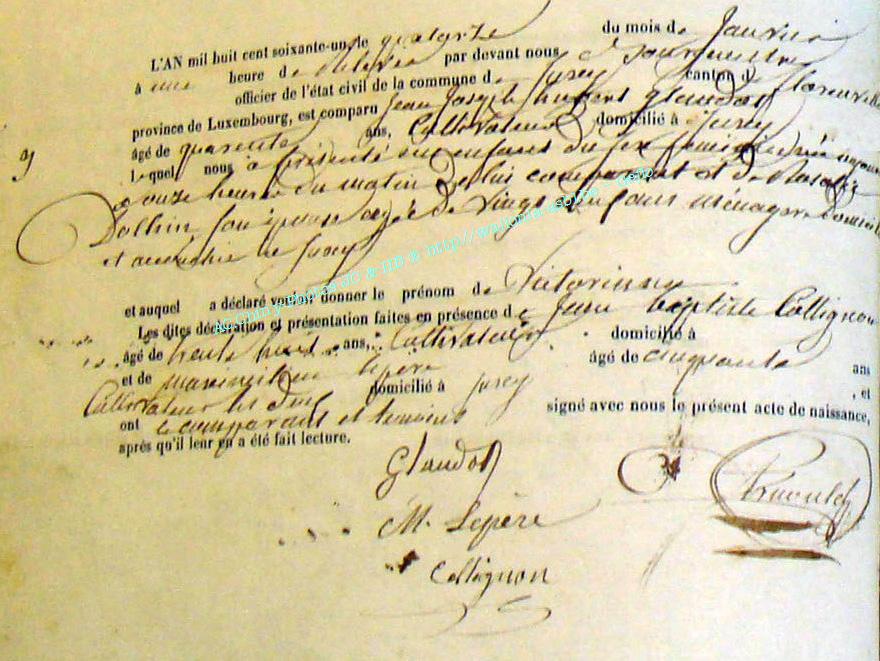 L'AN mil huit cent soixante-un, le quatorze du mois de Janvier
à une heure de relevée par devant nous Bourgmestre
officier de l'état civil de la commune de Jusey canton de florenville
province de Luxembourg, est comparu Jean Joseph hubert Glaudot
âgé de quarante ans, Cultivateur domicilié à Jusey
Lequel nous à présenté un enfant du sexe feminin née aujourd
à onze heures du matin de lui comparant et de Rosalie
Dolhin son épouse agée de Vingt ans ménagere domicili
et accouchée
et auquel a déclaré vouloir donner le prénom de Victorinne
Les dites déclaration et présentation faites en présence de Jean baptiste Collignon
âgé de trente huit ans, Cultivateur domicilié à
et de maximilien lepère âgé de cinquante ans
Cultivateur domicilié à jusey , et
les dits
ont comparant et temoins signé avec nous le présent acte de naissance,
après qu'il leur en a été fait lecture.
Glaudot
M. Lepère
Collignon
9
http://wallonia.